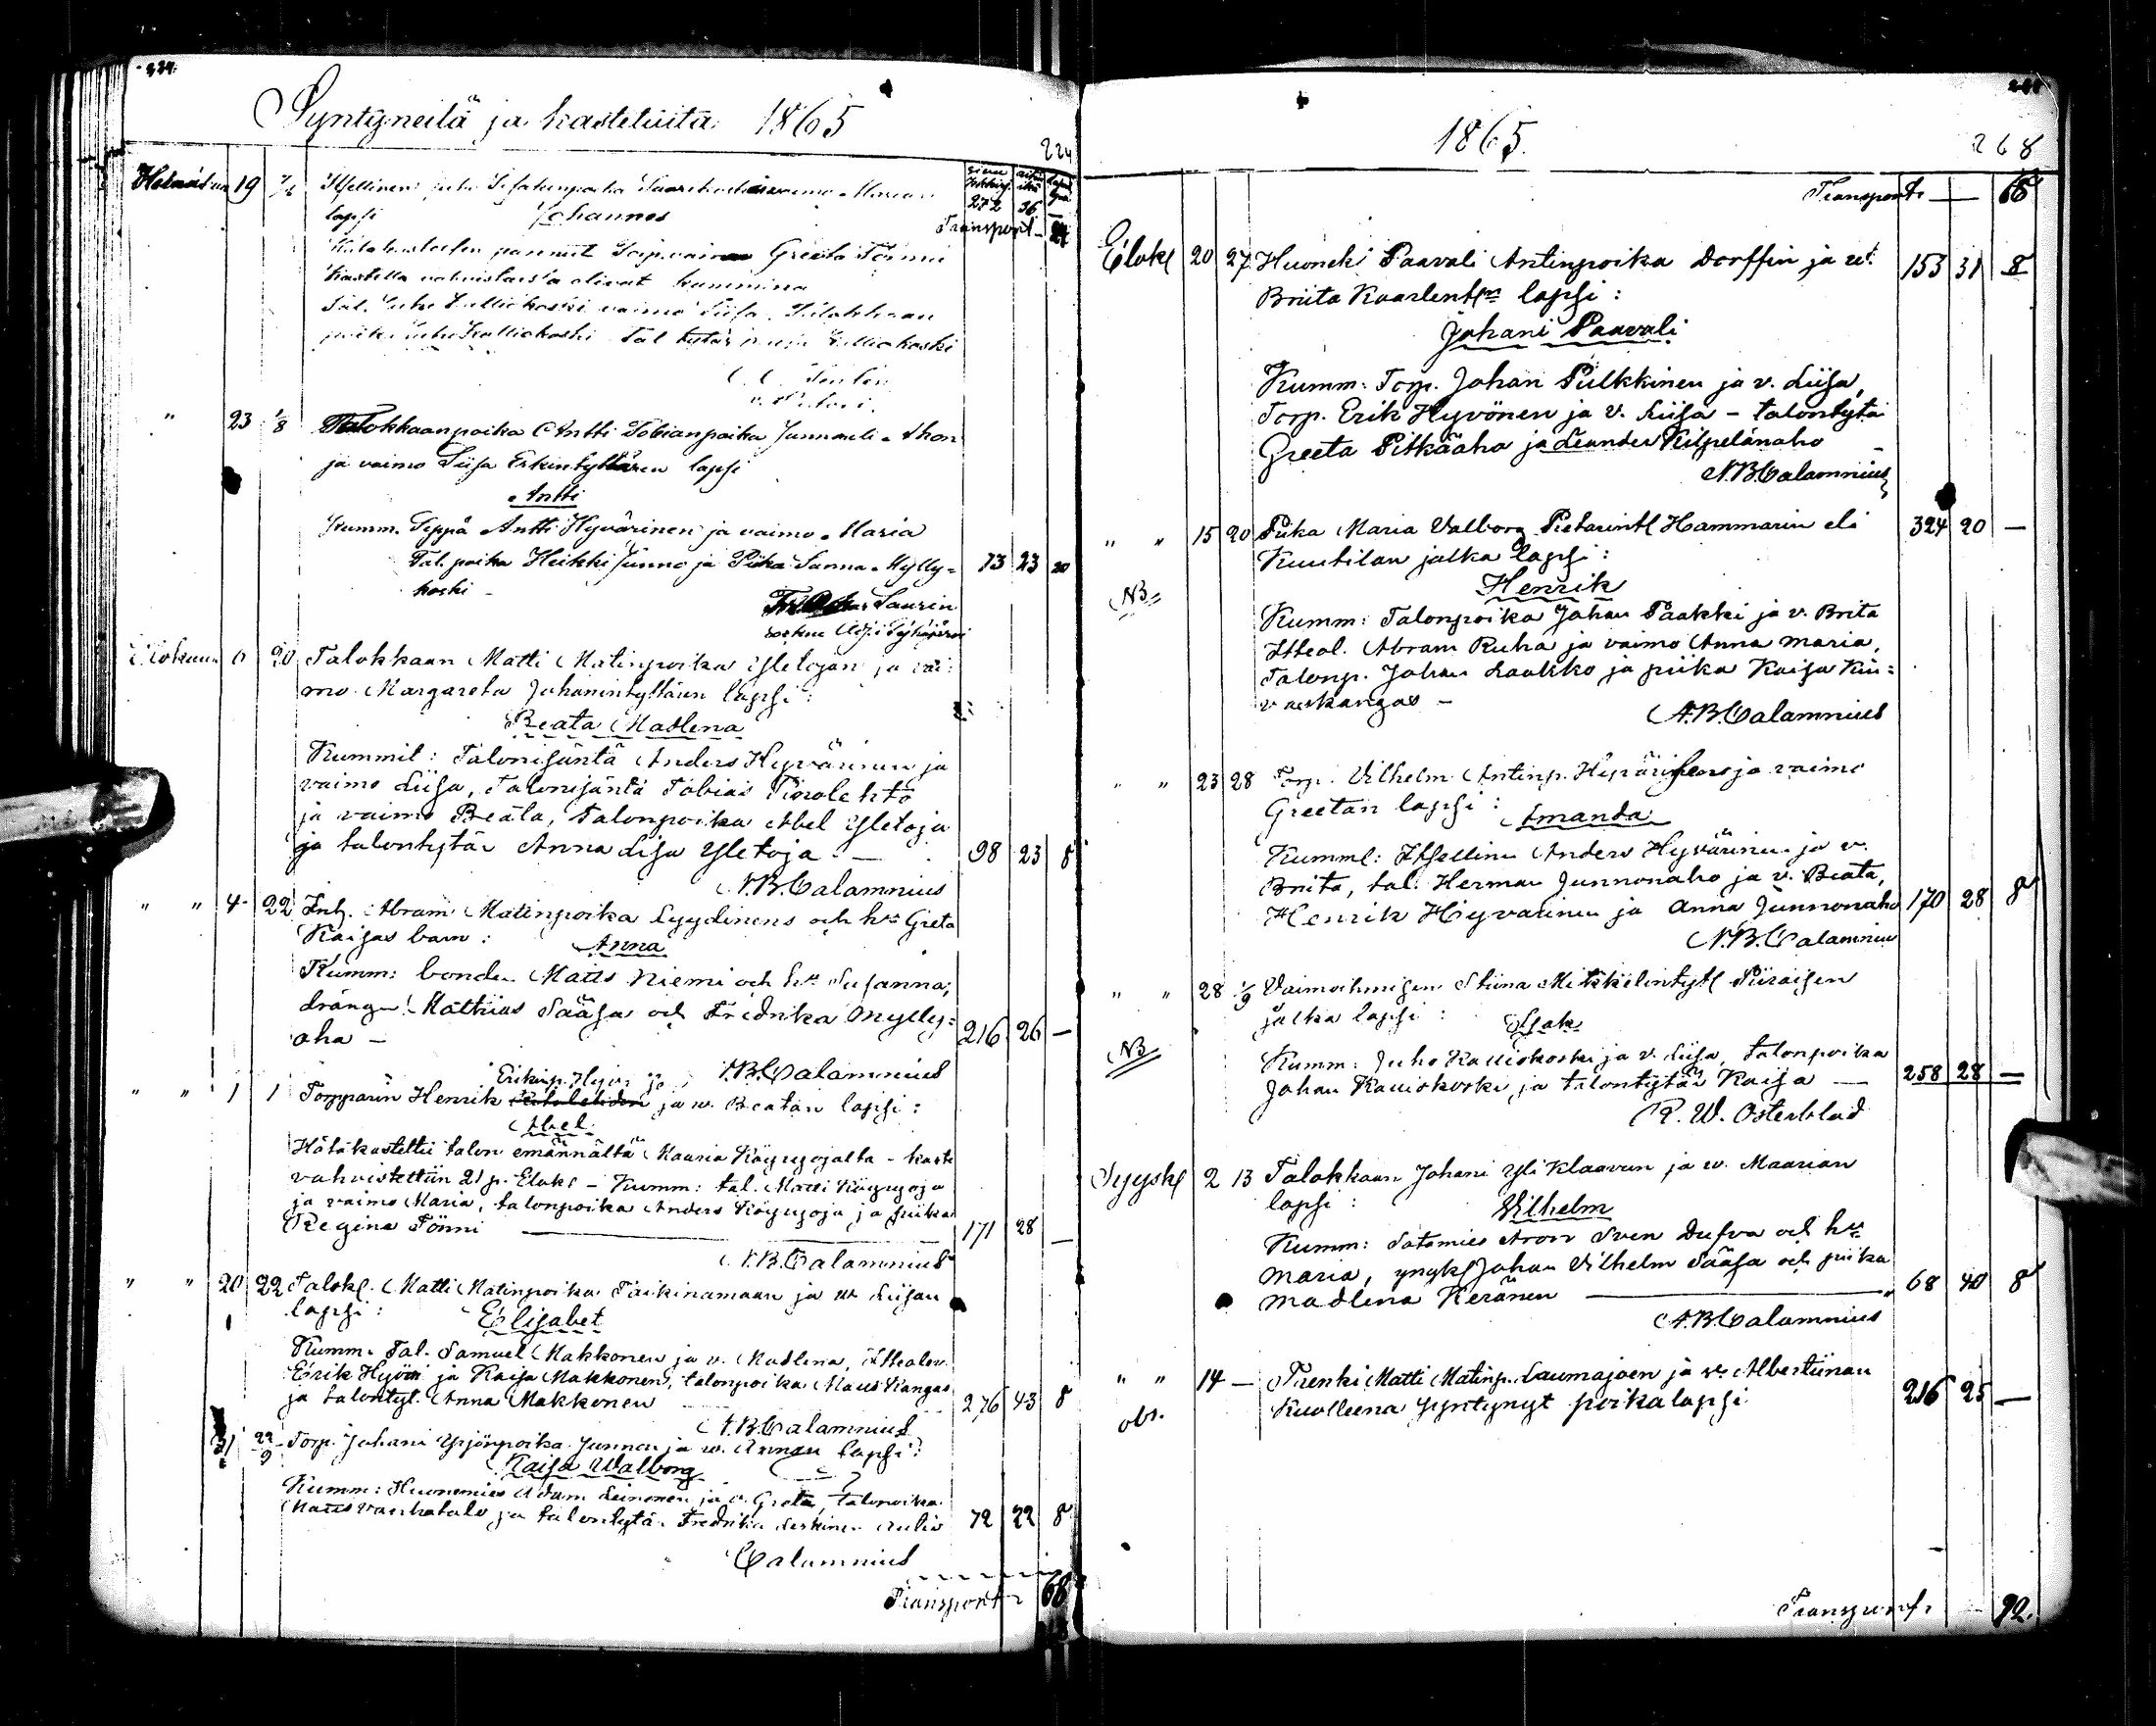 Syntyneitä ja kasteluita 1865
224
Heinäkuu 19 Itsellinen Juho Saarikoski vaimo Maria
lapsi Johannes 272 36 —
Transport
Hätäkasteen pannut Torp.vaimo Greeta Tönni
Kasteella vahvistaissa olivat kummina
Tal. Juho Kalliokoski vaimo Liisa, Talokkaan
poika Juho Kalliokoski tal tytär Kalliokoski
" 23 1/8 Talokkaanpoika Antti Tobianpoika Junnonli-Ahon
ja vaimo Liisa Erkintyttären lapsi
Antti
Kumm. Seppä Antti Hyvärinen ja vaimo Maria
Tal. poika Heikki Junno ja Piika Sanna Mylly- 73 23 20
koski –
Saurin
Elokuu 6 20 Talokkaan Matti Matinpoika Yletojan ja vai-
mo Margareta Johanintyttären lapsi:
Beata Madlena
Kummit: Talonisäntä Anders Hyvärinen ja
vaimo Liisa, Talonisäntä Tobias Pirolehto
ja vaimo Beata, Talonpoika Abel Yletoja
ja talontytär Anna Lisa Yletoja — 98 23 8
N.B. Calamnius
" " 4 22 Inh. Abram Matinpoika Lyydinens och hu Greta
Kaisas barn: Anna
Kumm: bonden Matts Niemi och hu Susanna,
drängen Mathias Sääsa och Fredrika Mylly-
aho — 216 26 —
N.B. Calamnius
Erikinp. Hyvö ja
" " 1 1 Torpparin Henrik ja w. Beatan lapsi:
Abel
Hätäkastettu talon emännältä Maaria Käyryojalta – kaste
vahvistettiin 21 p. Elok – Kumm: tal. Matti Käyryoja
ja vaimo Maria, talonpoika Anders Käyryoja ja piika
Regina Tönni — 171 28 —
N.B. Calamnius
" " 20 22 Talok. Matti Matinpoika Tärkinamaan ja w Liisan
lapsi: Elisabet
Kumm. Tal. Samuel Makkonen ja v. Madlena, Ittealew.
Eerik Hyöni ja Kaisa Makkonen, talonpoika Mats Kangas
ja talontyt. Anna Makkonen 276 43 8
N.B. Calamnius
31 22/9 Torp. Johani Yrjönpoika Junnon ja w. Annan lapsi:
Kaisa Walborg
Kumm: Huonemies Adam Leinonen ja v. Greta, talonpoika
Matts Vanhatalo ja talontytär Fredrika Leskinen 72 22 8
Calamnius
Transport 68
1865.
268
Transport — 68
Elok 20 27 Huonek Paavali Antinpoika Dorffin ja w: 153 31 8
Briita Kaarlent:n lapsi:
Johani Paavali
Kumm: Torp. Johan Pulkkinen ja v. Liisa,
Torp. Erik Hyvönen ja v. Liisa – talontytä
Greeta Pitkäaho ja Leander Kilpelänaho –
N.B. Calamnius
" " 15 20 Piika Maria Valborg Pietarint Hammarin eli 324 20 —
Kuutilan jalka lapsi:
NB Henrik
Kumm: Talonpoika Johan Paakki ja v. Brita
Itteal. Abram Ruha ja vaimo Anna Maria,
Talonp. Johan Laakko ja piika Kaisa Kii-
vaskangas –
N.B. Calamnius
" " 23 28 Torp. Vilhelm Antinp. Hyvärisen ja vaimo
Greetan lapsi: Amanda
Kumml: Itsellinen Anders Hyvärinen ja v.
Briita, tal. Herman Junnonaho ja v. Beata,
Henrik Hyvarinen ja Anna Junnonaho 170 28 8
N.B. Calamnius
" " 28 1/9 Vaimoihmisen Stiina Mikkelintyt Piiraisen
jalka lapsi: Isak
NB Kumm: Juho Kalliokoski ja v. Liisa, talonpoika
Johan Kalliokoski, ja talontytär Kaisa — 258 28 —
R. W. Osterblad
Syysk 2 13 Talokkaan Johani Yli Klaavun ja w. Maarian
lapsi: Vilhelm
Kumm: Sotamies Aron Sven Dufva och hu
Maria, yngk Johan Vilhelm Sääsa och piika
Madlena Keränen — 68 40 8
N.B. Calamnius
" " 14 — Trenki Matti Matinp. Laumajoen ja w Albertiinan
obs. Kuolleena syntynyt poikalapsi 216 25 —
Transport 92.